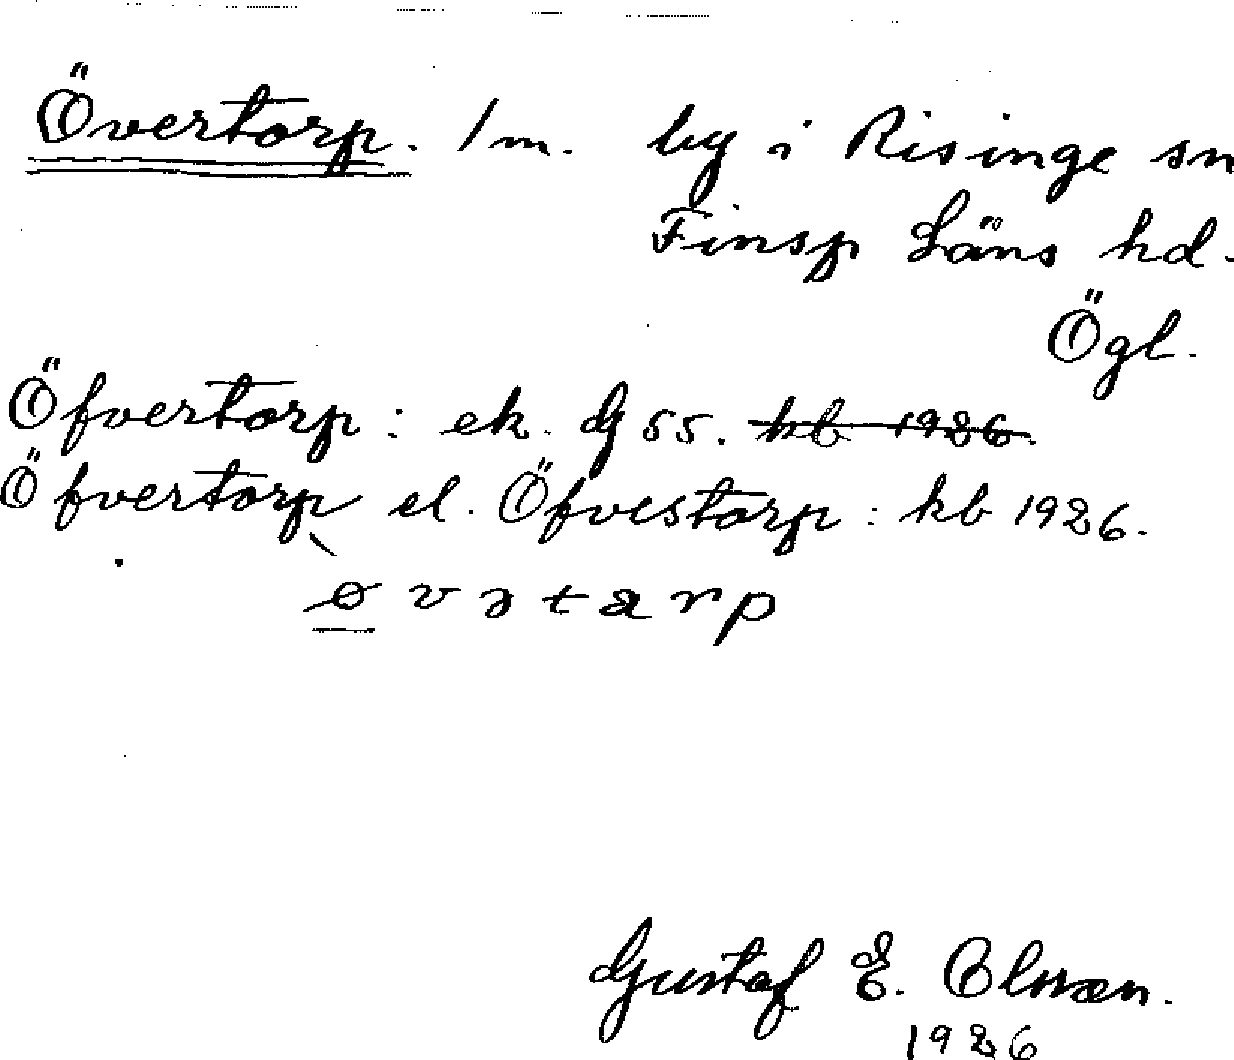 Övertorp. 1 m. by i Risinge sn
Finsp Läns hd.
Ögl.
Öfvertorp: ek. G 55. kb 1926.
Öfvertorp el. Öfvestorp: kb 1926.
øvətarp
Gustaf E. Olsson.
1926